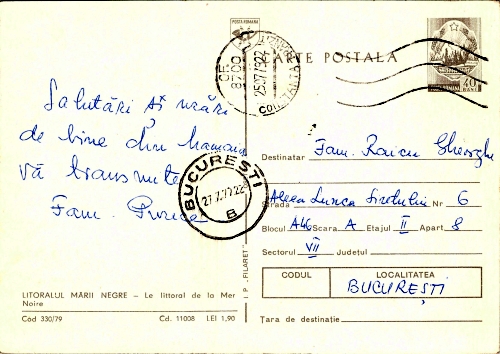 POSTA ROMANA
CARTE POSTALA
40
BANI
Salutări și urări
de bine din Mamaia
vă transmite
Fam.
BUCUREȘTI
27.7.79.22
B
Destinatar Fam. Raicu Gheorghe
Strada Aleea Lunca Siretului Nr 6
Blocul A46 Scara A Etajul II Apart 8
Sectorul VII Județul
CODUL
LOCALITATEA
BUCUREȘTI
Țara de destinație
I P „FILARET"
LITORALUL MĂRII NEGRE – Le littoral de la Mer
Noire
Cod 330/79 Cd. 11008 LEI 1,90